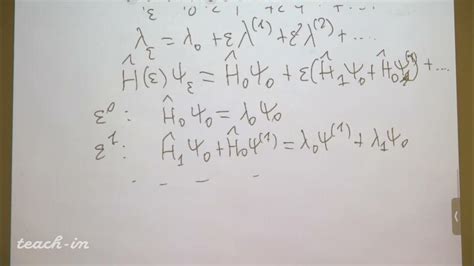 λ_ε = λ_0 + ελ^(1) + ε²λ^(2) + ....
Ĥ(ε)Ψ_ε = Ĥ_0Ψ_0 + ε(Ĥ_1Ψ_0 + Ĥ_0Ψ^(1)) + ...
ε⁰: Ĥ_0Ψ_0 = λ_0Ψ_0
ε¹: Ĥ_1Ψ_0 + Ĥ_0Ψ^(1) = λ_0Ψ^(1) + λ_1Ψ_0
teach-in